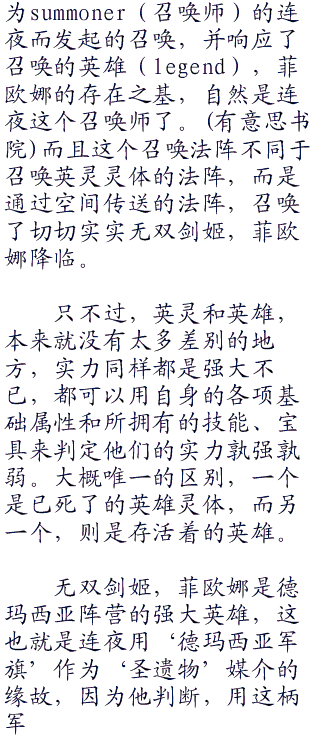 为summoner（召唤师）的连
夜而发起的召唤，并响应了
召唤的英雄（legend），菲
欧娜的存在之基，自然是连
夜这个召唤师了。(有意思书
院)而且这个召唤法阵不同于
召唤英灵灵体的法阵，而是
通过空间传送的法阵，召唤
了切切实实无双剑姬，菲欧
娜降临。
只不过，英灵和英雄，
本来就没有太多差别的地
方，实力同样都是强大不
已，都可以用自身的各项基
础属性和所拥有的技能、宝
具来判定他们的实力孰强孰
弱。大概唯一的区别，一个
是已死了的英雄灵体，而另
一个，则是存活着的英雄。
无双剑姬，菲欧娜是德
玛西亚阵营的强大英雄，这
也就是连夜用‘德玛西亚军
旗’作为‘圣遗物’媒介的
缘故，因为他判断，用这柄
军